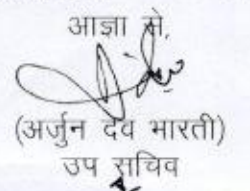 आज्ञा से,
(अर्जुन देव भारती)
उप सचिव